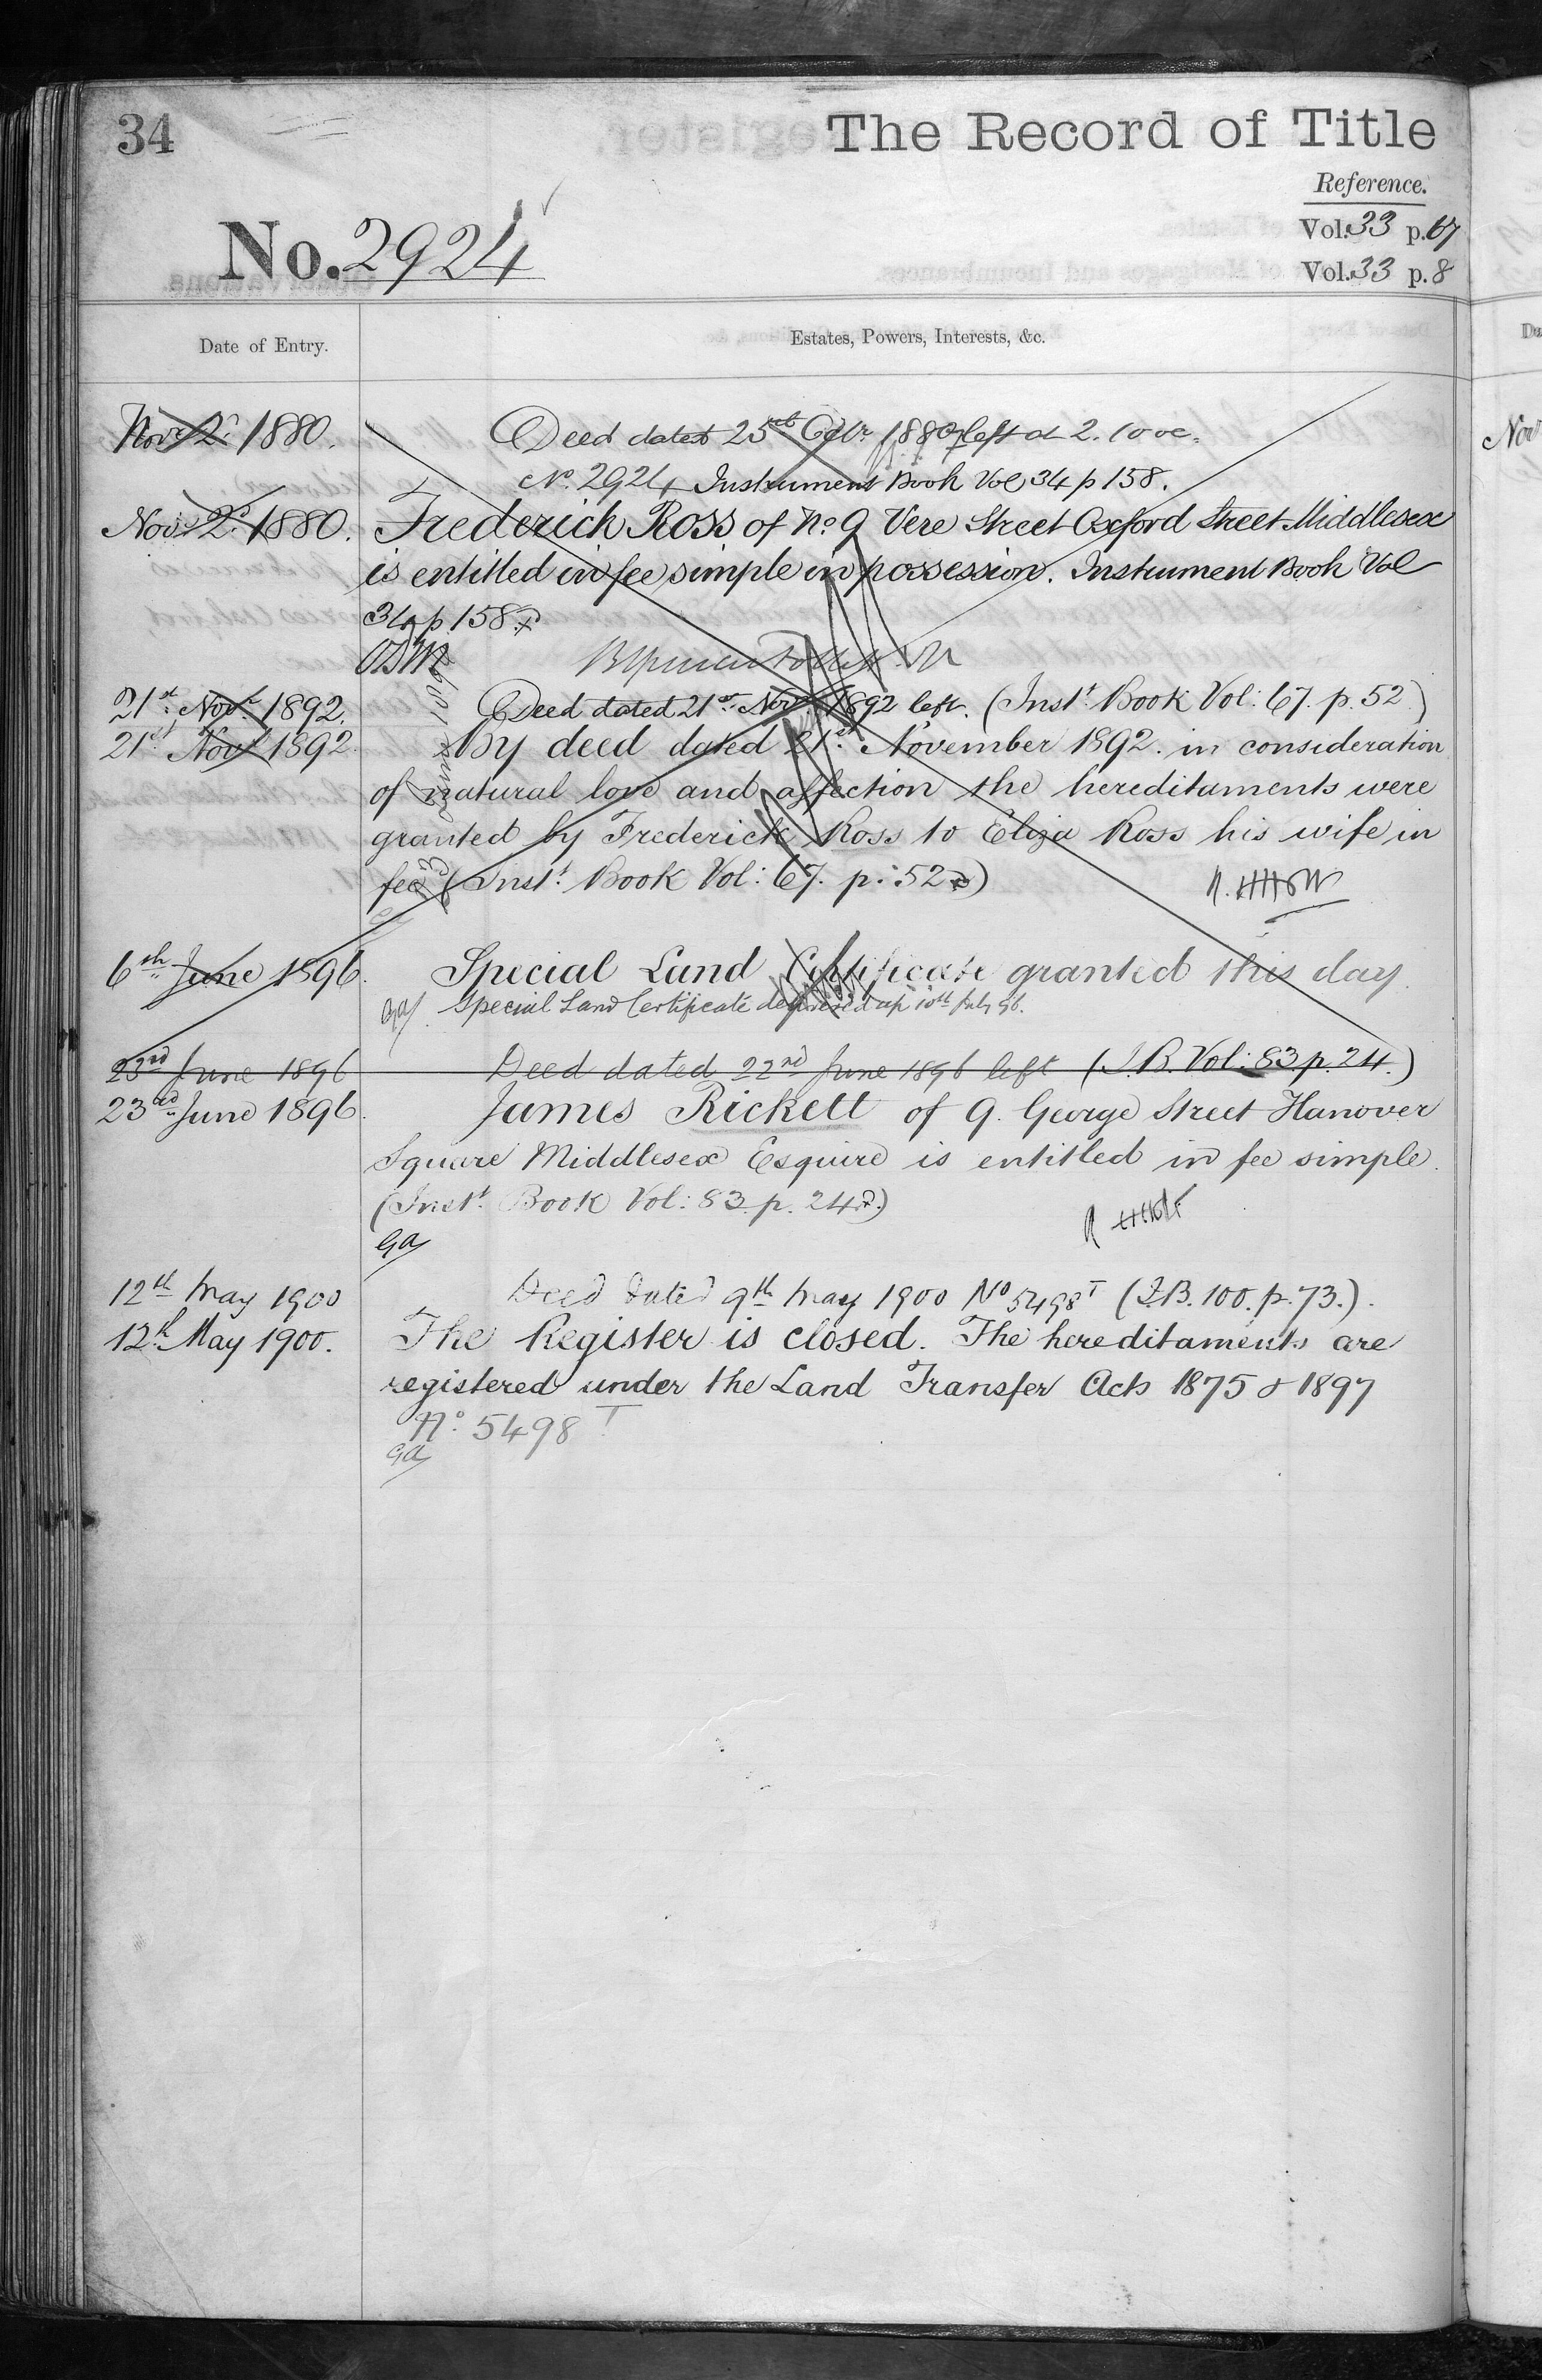 34
The Record of Title
Reference.
Vol. 33 p. 67
Vol. 33 p. 8
No. 2924
Date of Entry.
Estates, Powers, Interests, &c.
Novr 2d 1880. Deed dated 25th Octr 1880 left at 2.10 oc.
No. 2924 Instrument Book Vol 34 p 158.
Novr 2d 1880. Frederick Ross of No 9 Vere Street Oxford Street Middlesex
is entitled in fee simple in possession. Instrument Book Vol
34 p 158.
21st Novr 1892. Deed dated 21st Novr 1892 left. (Inst Book Vol: 67. p. 52)
21st Novr 1892. By deed dated 21st November 1892 in consideration
of natural love and affection the hereditaments were
granted by Frederick Ross to Eliza Ross his wife in
fee (Inst Book Vol: 67. p: 52)
6th June 1896. Special Land Certificate granted this day.
Special Land Certificate delivered up 10th July 96.
23rd June 1896 Deed dated 22nd June 1896 left (I.B. Vol: 83 p. 24.)
23rd June 1896. James Rickett of 9. George Street Hanover
Square Middlesex Esquire is entitled in fee simple.
(Inst Book Vol: 83. p. 24.)
GA
12th May 1900 Deed dated 9th May 1900 No 5498 T (I.B. 100. p. 73.).
12th May 1900. The Register is closed. The hereditaments are
registered under the Land Transfer Acts 1875 & 1897
No 5498 T
GA
Nov